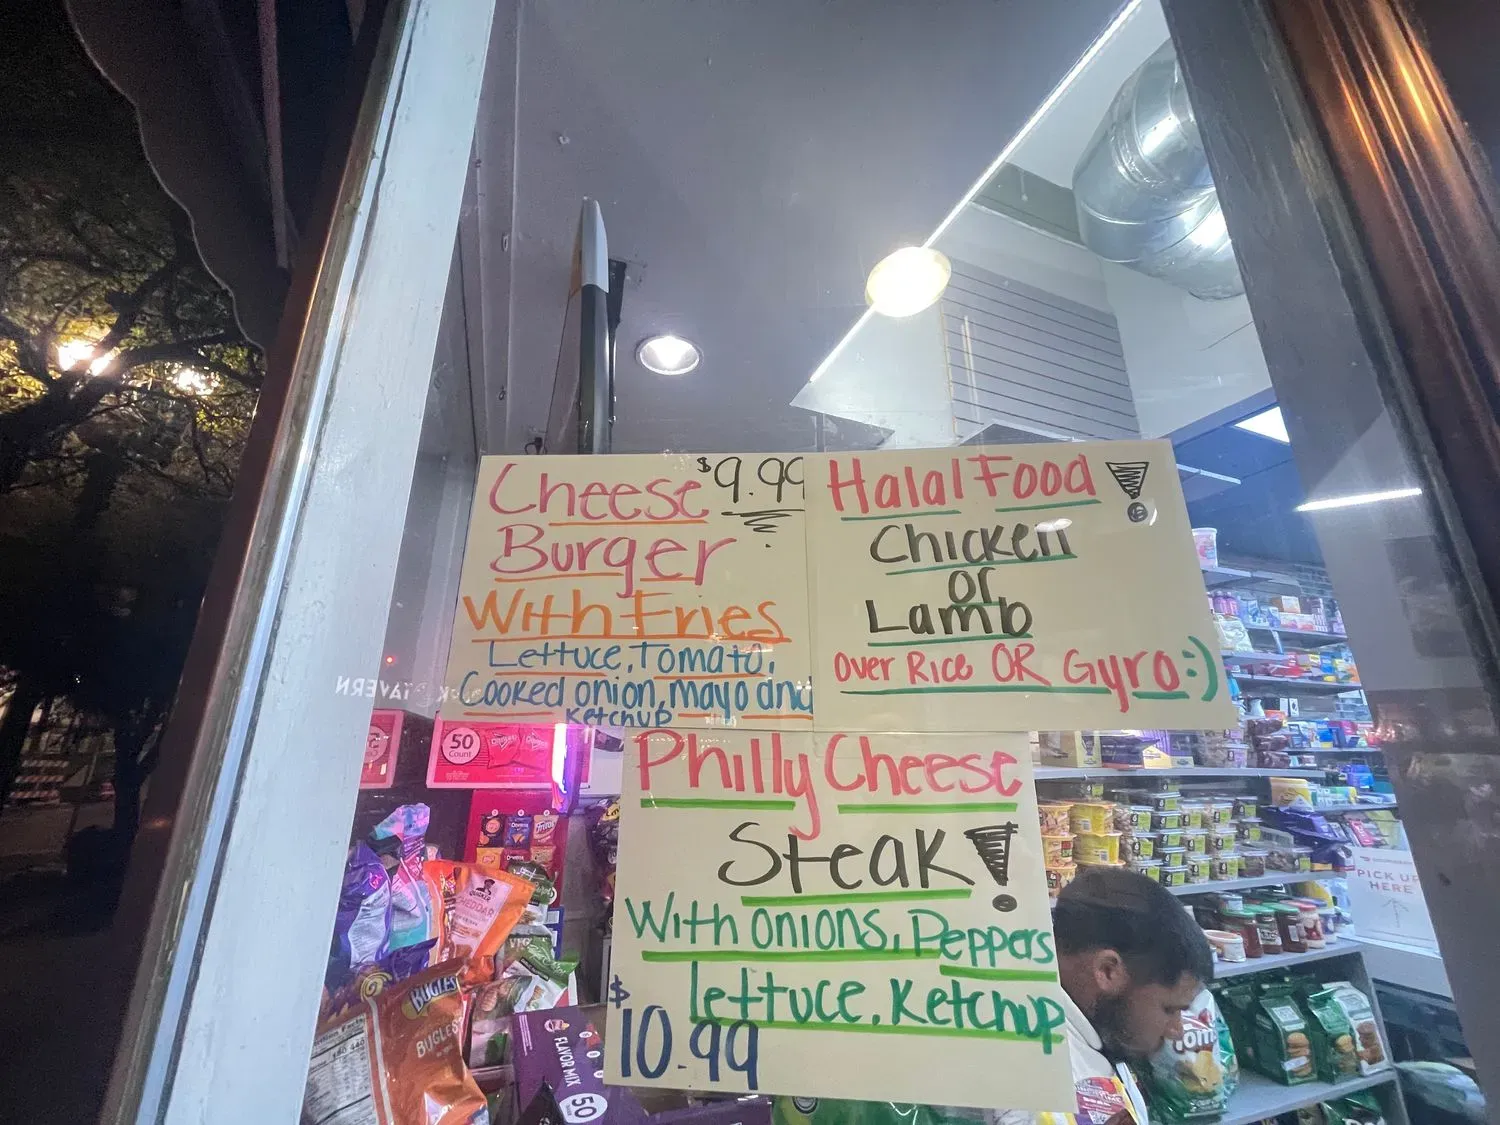 Cheese $9.99
Burger
With Fries
Lettuce, Tomato,
Cooked onion, mayo and
Ketchup
Halal Food!
Chicken
or
Lamb
over Rice OR Gyro :)
Philly Cheese
Steak!
With onions, Peppers
lettuce, Ketchup
$10.99
TAVERN
50
Count
Fritos
QUAKER
CHEDDAR
BUGLES
BUGLES
FLAVOR MIX
50
PICK UP
HERE